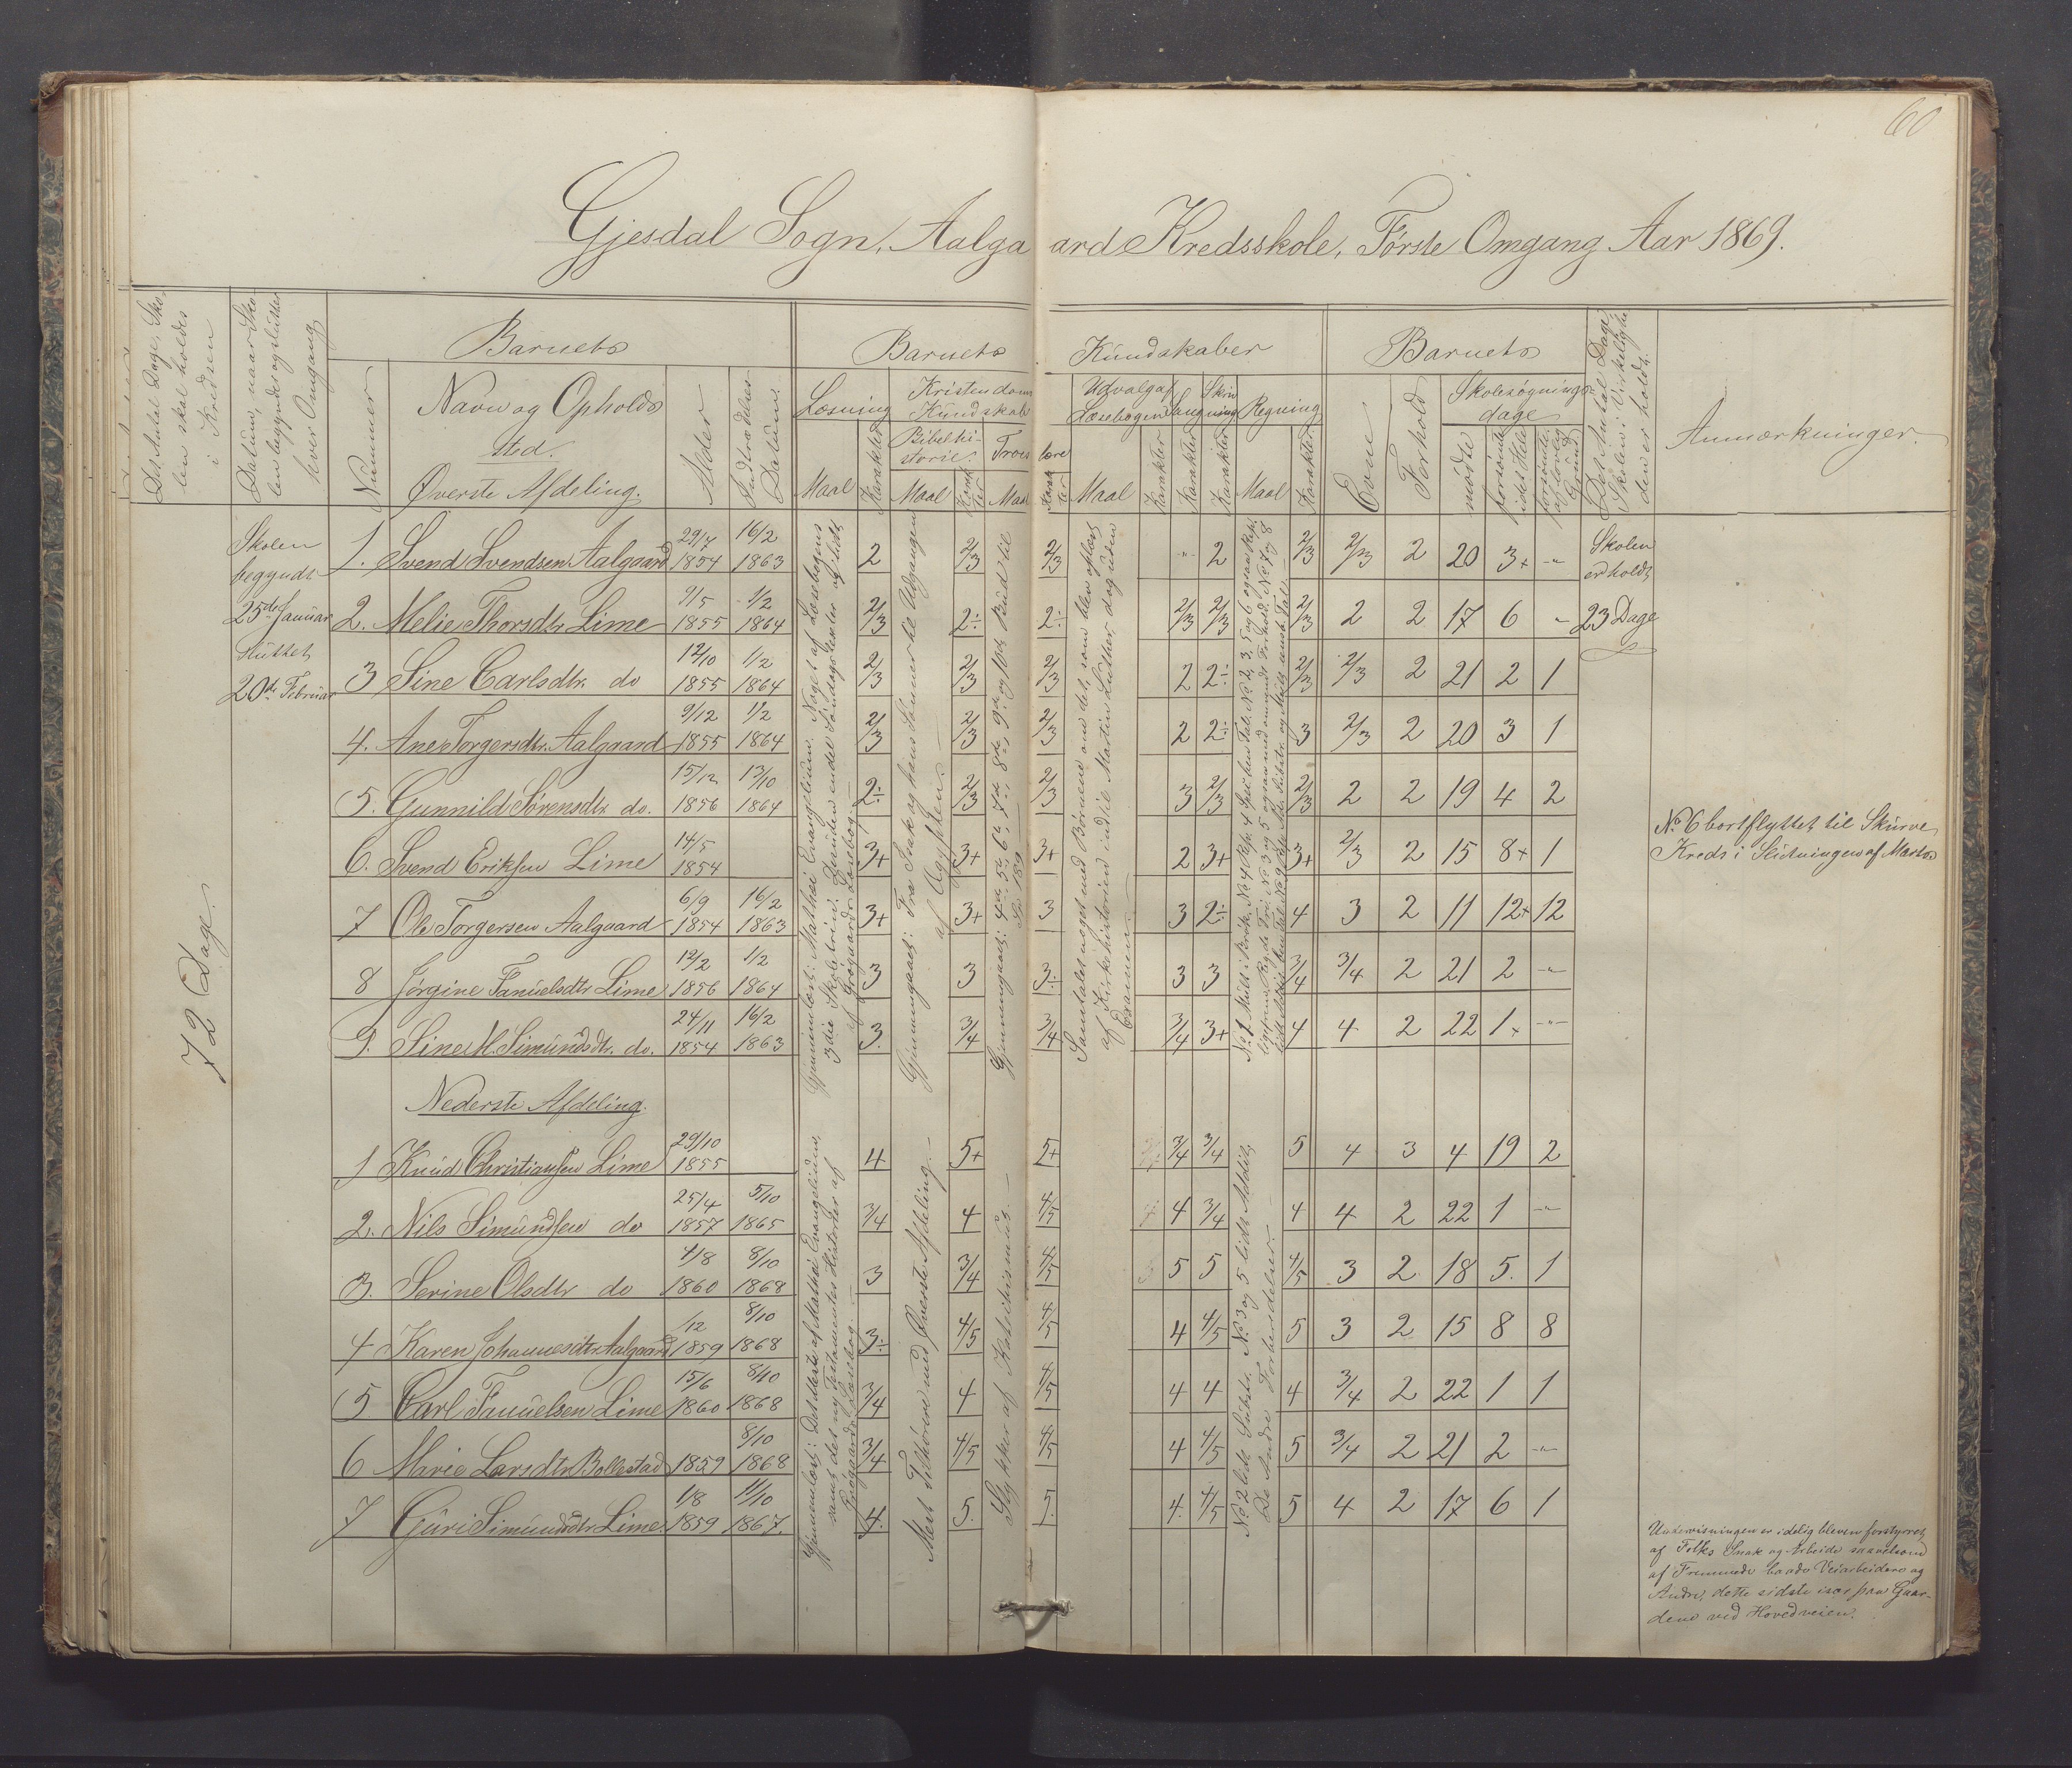 60
Gjesdal Sogn, Aalgaard Kredsskole, Første Omgang Aar 1869.
Det Antal Dage, Sko-
len skal holdes
i Kredsen
Datum, naar Sko-
len begyndes og slutter
hver Omgang
Barnets
Nummer
Navn og Opholds
sted.
Øverste Afdeling.
Alder
Indtrædelses
Datum
Barnets Kundskaber
Læsning
Maal
Karakter
Kristendoms
Kundskab
Bibelhi-
storie.
Maal
Karak
ter
Troes lære
Maal
Karak
ter
Udvalg af
Læsebogen
Maal
Karakter
Sang
Karakter
Skriv
ning
Karakter
Regning
Maal
Karakter
Barnets
Evne
Forhold
Skolesøgnings-
dage
mødte
forsømte
i det Hele
forsømte
af lovlig
Grund
Det Antal Dage,
Skolen i Virkelighe
den er holdt.
Anmærkninger.
72 Dage.
Skolen
begyndt
25de Januar
sluttet
20de Februar
1. Svend Svendsen Aalgaard 29/7 1854 16/2 1863 2 2/3 2/3 " 2 2/3 2/3 2 20 3+ -"-
2. Melie Thorsdtr Lime 9/5 1855 1/2 1864 2/3 2÷ 2÷ 2/3 2/3 2/3 2 2 17 6 "
3 Sine Carlsdtr. do 12/10 1855 1/2 1864 2/3 2/3 2/3 2 2÷ 2/3 2/3 2 21 2 1
4. Ane Torgersdtr. Aalgaard 9/12 1855 1/2 1864 2/3 2/3 2/3 2 2÷ 3 2/3 2 20 3 1
5. Gunnild Sørensdtr. do. 15/12 1856 13/10 1864 2÷ 2/3 2/3 3 2/3 2/3 2 2 19 4 2
6. Svend Eriksen Lime 14/5 1854 3+ 3+ 3+ 2 3+ 3+ 2/3 2 15 8+ 1
7 Ole Torgersen Aalgaard 6/9 1854 16/2 1863 3+ 3+ 3 3 2÷ 4 3 2 11 12+ 12
8 Jörgine Fanuelsdtr Lime 12/2 1856 1/2 1864 3 3 3÷ 3 3 3/4 3/4 2 21 2 -"-
9. Sine M. Simundsdtr. do. 24/11 1854 16/2 1863 3. 3/4 3/4 3/4 3+ 4 4 2 22 1+ -"-
Skolen
er holdt
23 Dage
Gjennemlæst: Matthæi Evangelium. Noget af Læsebogens
3die Skoletrin. Desuden endel Søndagstexter og lidt
af Grøgaards Læsebog.
Gjennemgaaet: Fra Isak og hans Sønner til Udgangen
af Ægypten.
Gjennemgaaet: 4de 5te 6te 7de 8de 9de og 10de Bud til
Sp. 189
Samtalet noget med Børnene om det, som blev oplæst
af Kirkehistorien indtil Martin Luther dog uden
Examen.
Nederste Afdeling.
1 Knud Christiansen Lime 29/10 1855 4 5+ 5+ 3/4 3/4 5 4 3 4 19 2
2. Nils Simundsen do 25/4 1857 5/10 1865 3/4 4 4/5 4 3/4 4 4 2 22 1 -"-
3. Serine Olsdtr do 4/8 1860 8/10 1868 3 3/4 4/5 5 5 4/5 3 2 18 5. 1
4 Karen Johannesdtr Aalgaard /12 1859 8/10 1868 3÷ 4/5 4/5 4 4/5 5 3 2 15 8 8
5 Carl Fanuelsen Lime 15/6 1860 8/10 1868 3/4 4 4/5 4 4 4 3/4 2 22 1 1
6 Marie Larsdtr Bollestad 1859 8/10 1868 3/4 4/5 4/5 4 4/5 5 3/4 2 21 2 -"-
7 Guri Simundsdtr Lime. 1/8 1859 11/10 1867. 4. 5. 5. 4. 4/5 5 4 2 17 6 1
Gjennemlæst: Det Meste af Matthæi Evangelium,
samt det ny Testamentes Historier af
Grøgaards Læsebog.
Mest Tilhørere med Øverste Afdeling.
Stykker af Katechismus.
No 2 lidt Subtr., No 3 og 5 lidt Addit,
De Andre Forberedelser.
No 6 bortflyttet til Skurve
Kreds i Slutningen af Marts
Undervisningen er idelig bleven forstyrret
af Folks Snak og Arbeide saavelsom
af Fremmede baade Veiarbeidere og
Andre, dette sidste især paa Gaar-
dene ved Hovedveien.